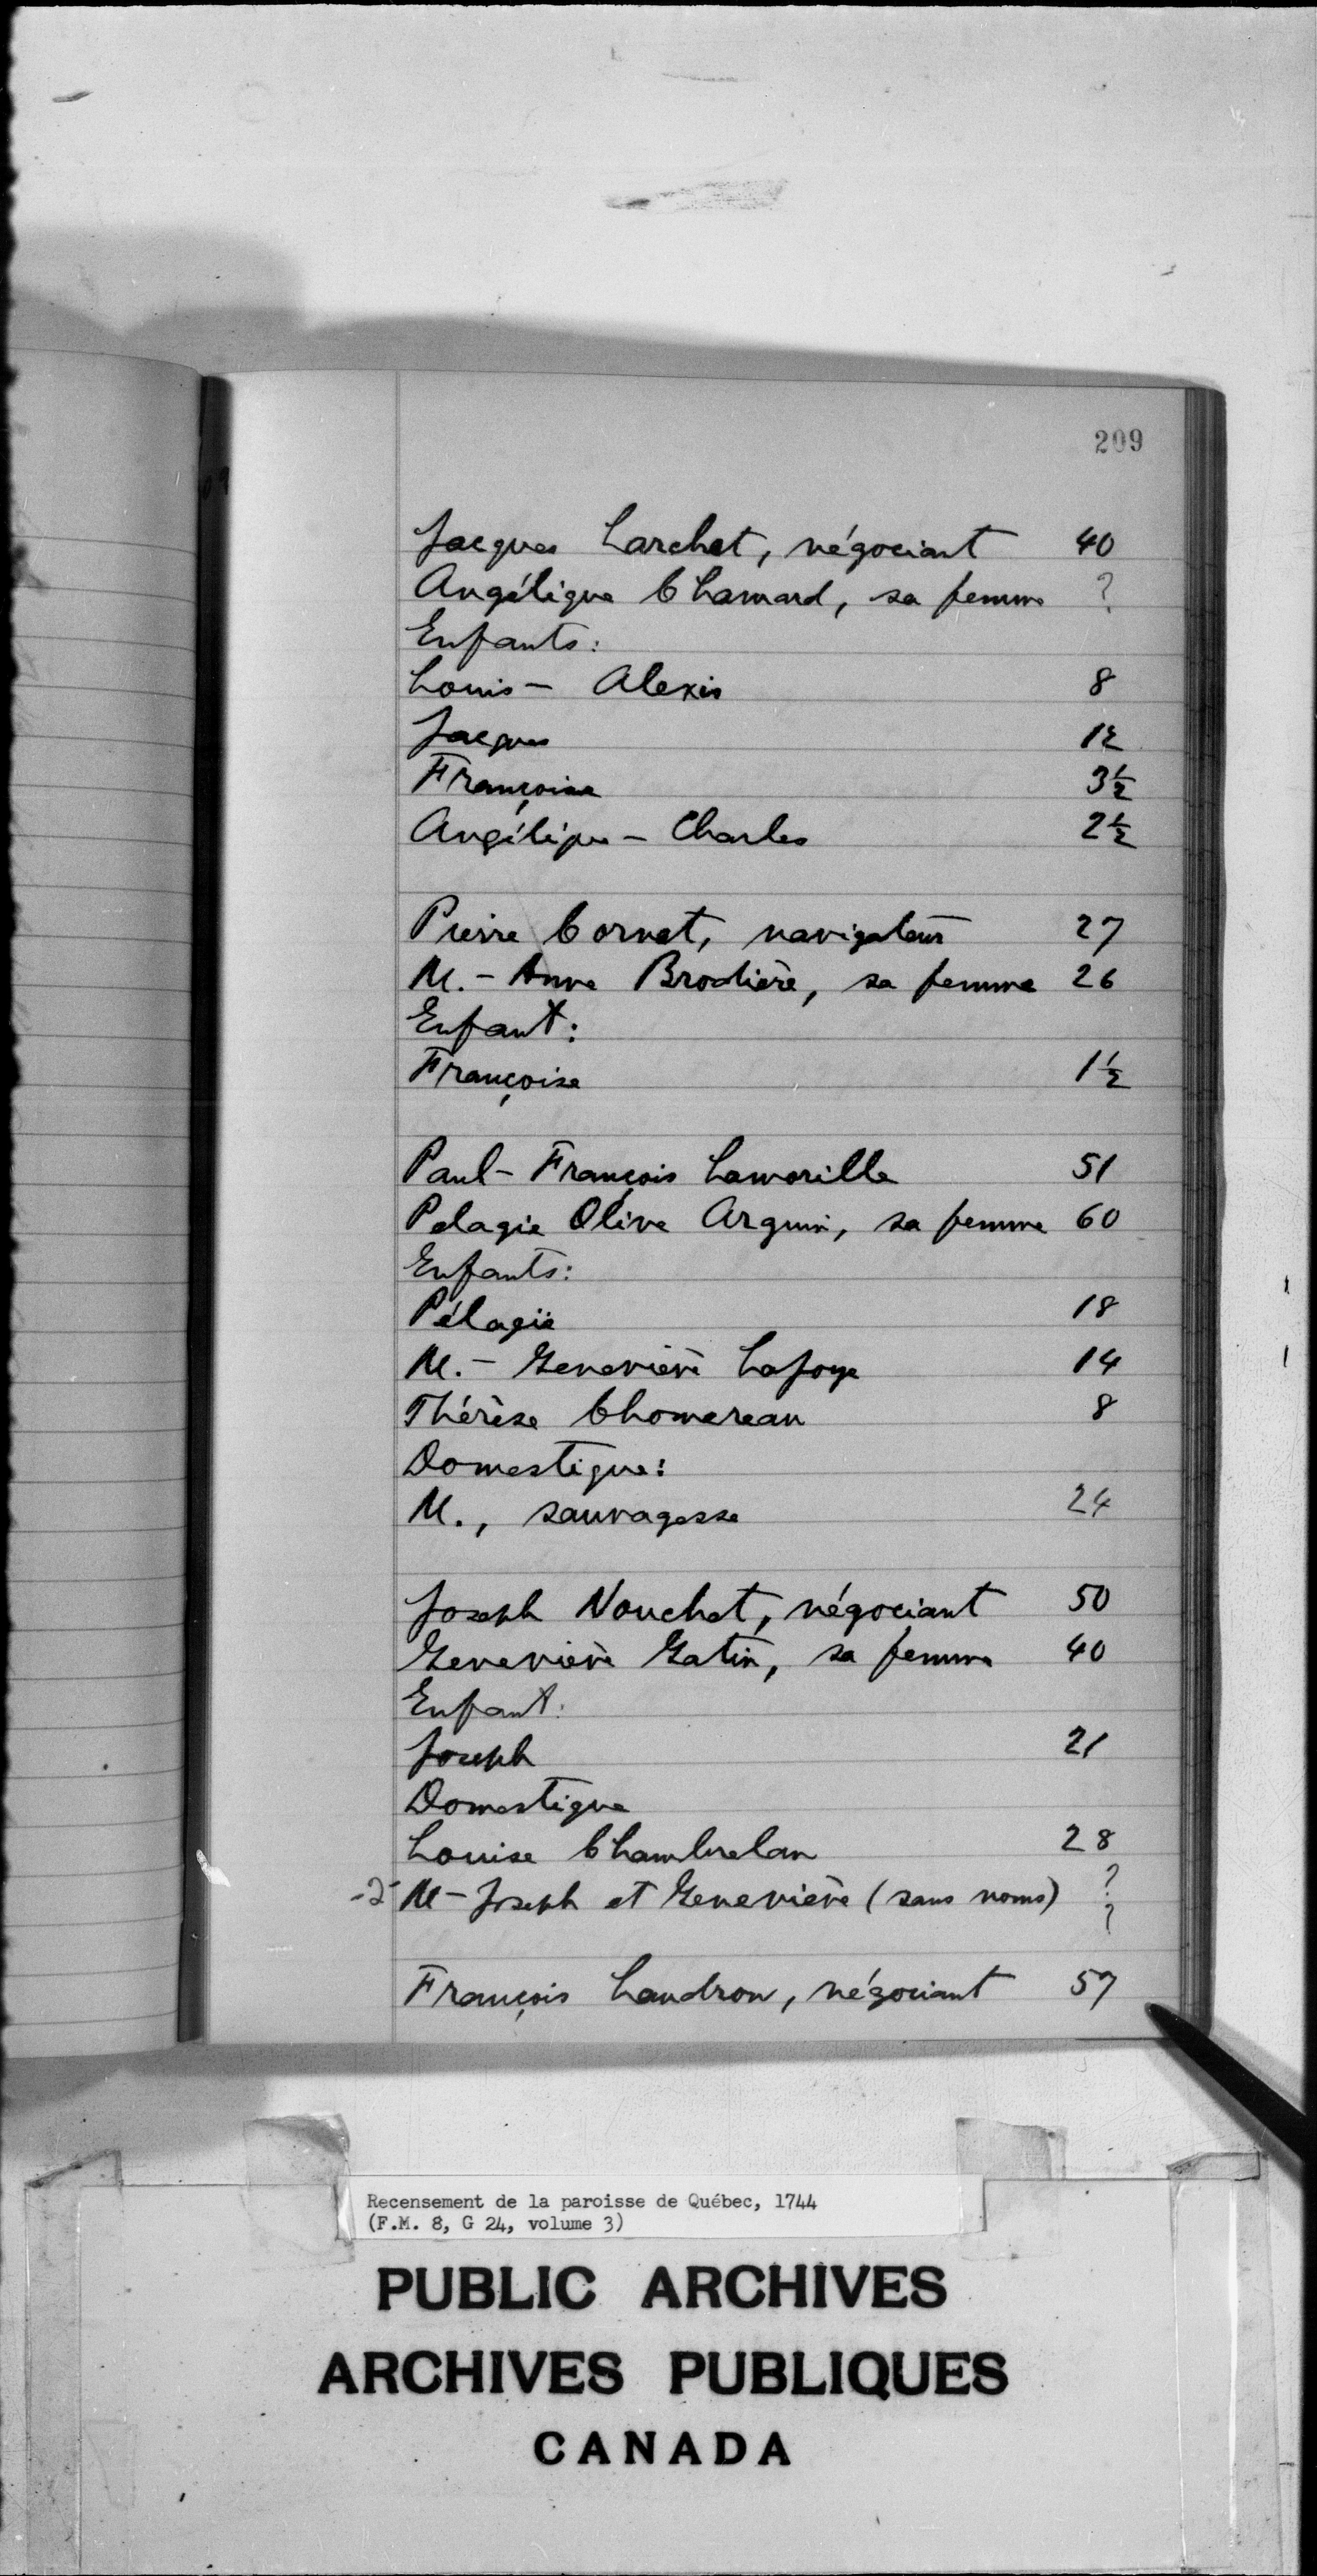 209
Jacques Larchet, négociant 40
Angélique Chamard, sa femme ?
Enfants:
Louis - Alexis 8
Jacques
Françoise 3½
Angélique - Charles 2½
Pierre Cornet, navigateur 27
M. - Anne Brodière, sa femme 26
Enfant:
Françoise 1½
Paul - François Lamorille 51
Pelagie Olive Arguin, sa femme 60
Enfants:
Pélagie 18
M. - Geneviève Lafoye 14
Thérèse Chomereau 8
Domestique:
M., sauvagesse 24
Joseph Nouchet, négociant 50
Geneviève Gatin, sa femme 40
Enfant:
Joseph 21
Domestique
Louise Chambrelan 28
-2- M - Joseph et Geneviève (sans noms) ?
?
François Landron, négociant 57
Recensement de la paroisse de Québec, 1744
(F.M. 8, G 24, volume 3)
PUBLIC ARCHIVES
ARCHIVES PUBLIQUES
CANADA